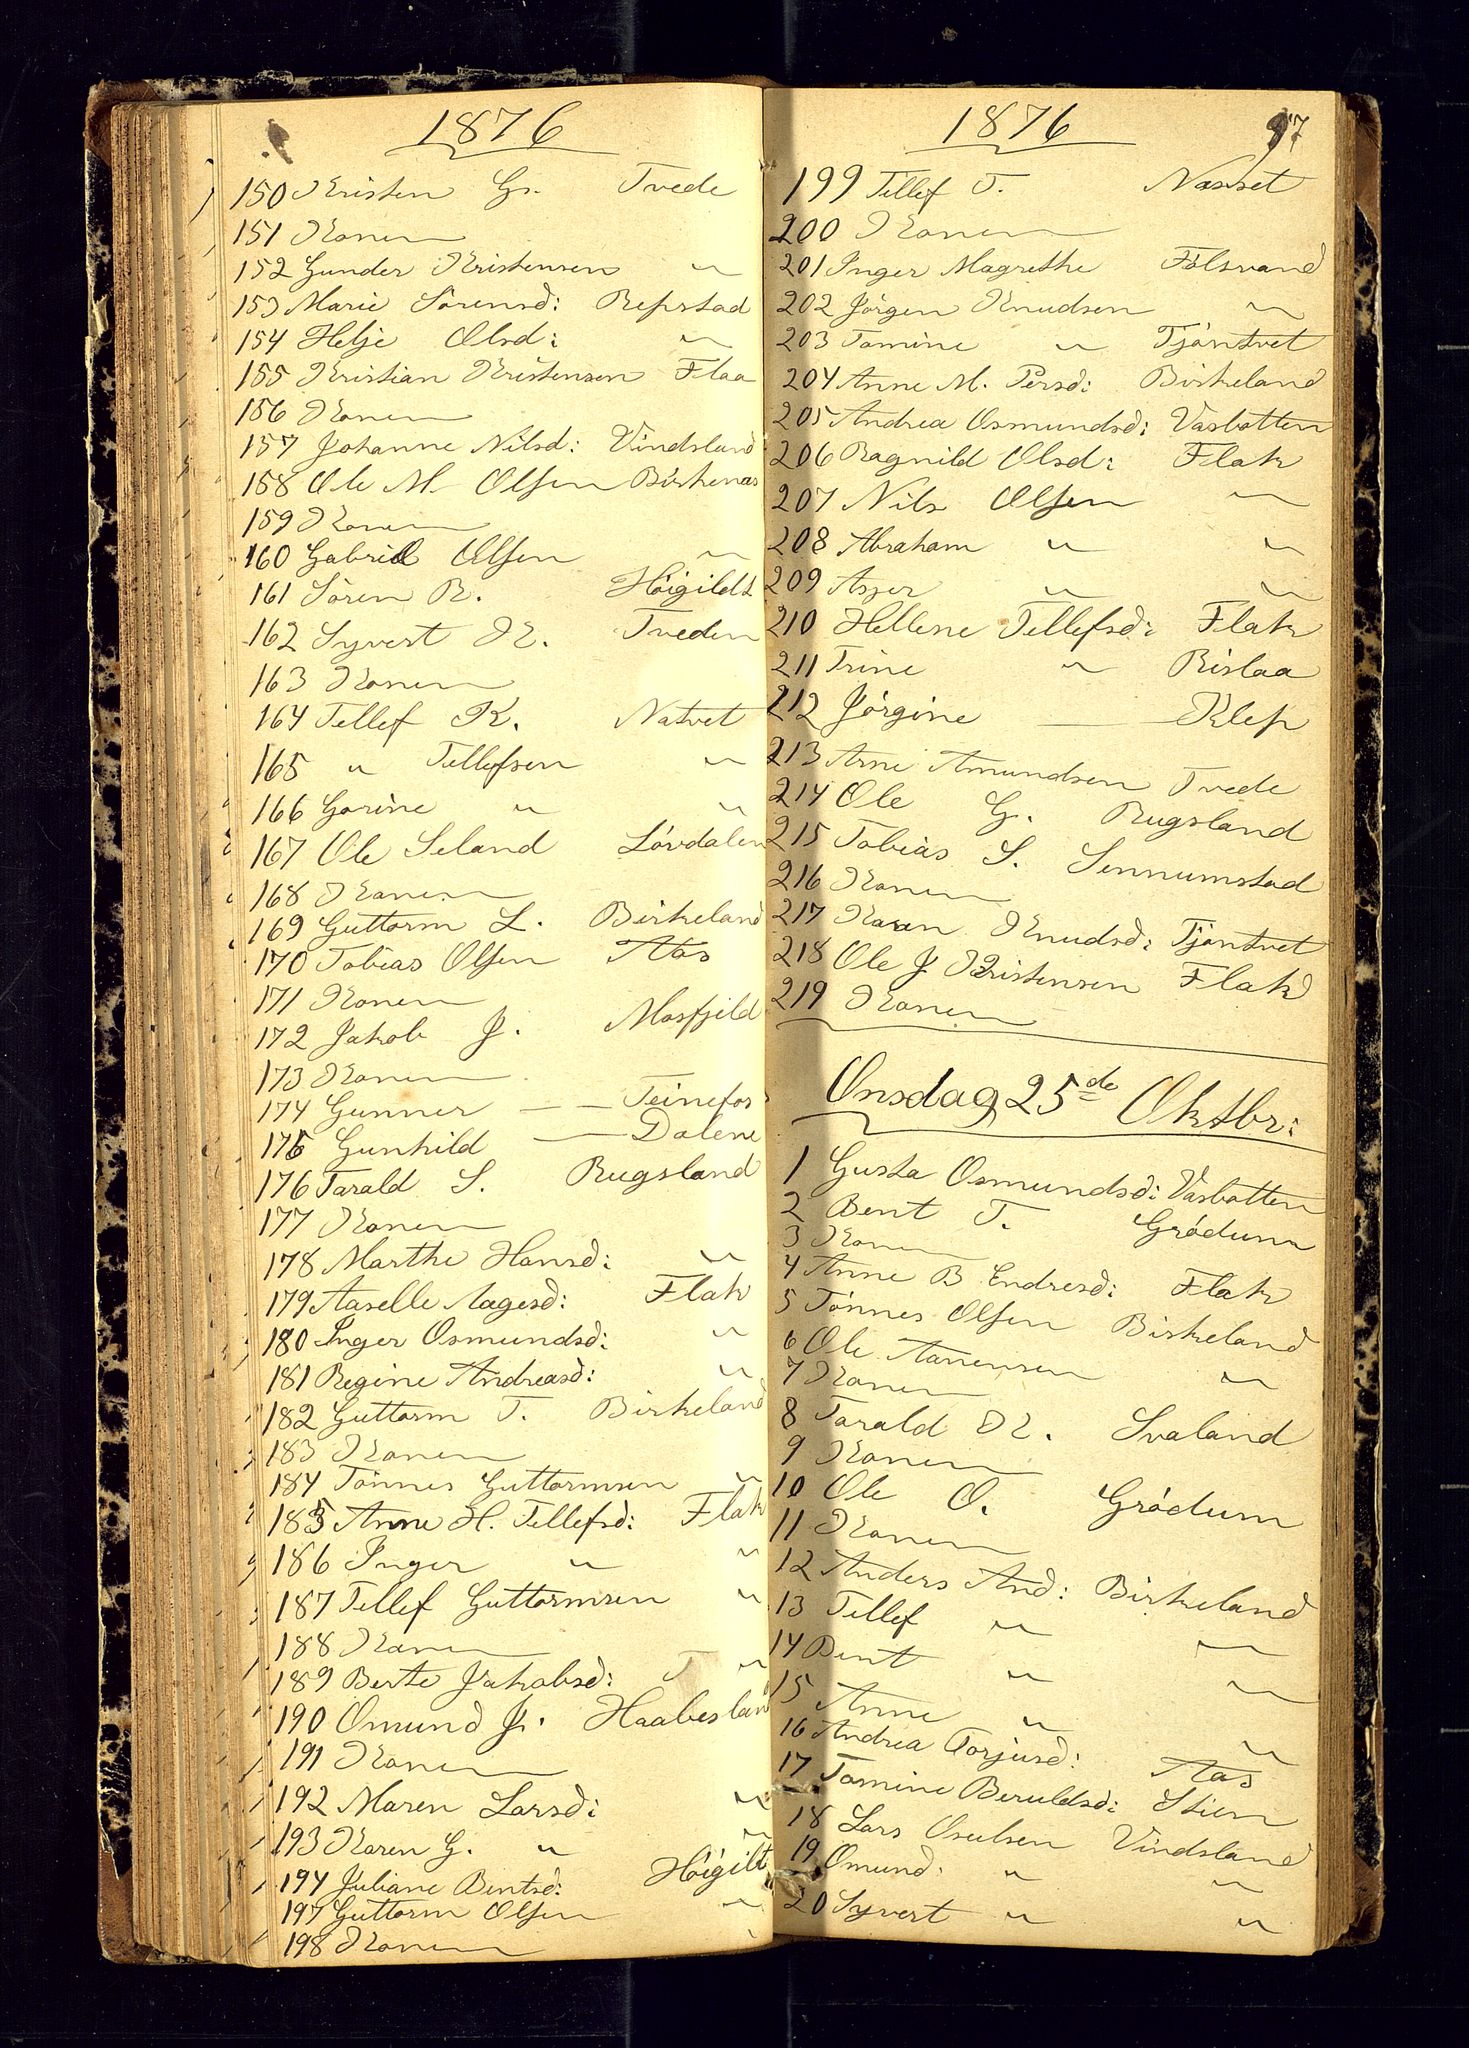 1876
150 Kristen G. Tvede
151 Konen
152 Gunder Kristensen "
153 Marie Sörensd: Repstad
154 Helje Olsd: "
155 Kristian Kristensen Flaa
156 Konen
157 Johanne Nilsd: Vindsland
158 Ole M Olsen Birkenæs
159 Konen
160 Gabriel Olsen "
161 Sören R. Höigildt
162 Syvert K. Tveden
163 Konen
164 Tellef K. Natvet
165 " Tellefsen "
166 Gorine " "
167 Ole Seland Lövdalen
168 Konen
169 Guttorm L. Birkeland
170 Tobias Olsen Aas
171 Konen
172 Jakob J. Mosfjeld
173 Konen
174 Gunner — — Teinefos
175 Gunhild — Dalene
176 Tarald S. Rugsland
177 Konen
178 Marthe Hansd: "
179 Aaselle Aagesd: Flak
180 Inger Osmundsd: "
181 Regine Andreasd: "
182 Guttorm T. Birkeland
183 Konen
184 Tönnes Guttormsen "
185 Anne H. Tellefsd: Flak
186 Inger " "
187 Tellef Guttormsen "
188 Konen
189 Berte Jakobsd: "
190 Omund J. Haabesland
191 Konen
192 Maren Larsd: "
193 Karen G. " "
194 Juliane Bentsd: Höigilt
197 Guttorm Olsen "
198 Konen
1876 97
199 Tellef T. Næsset
200 Konen
201 Inger Magrethe Fölsvand
202 Jörgen Knudsen "
203 Tomine " Tjöntvet
204 Anne M. Persd: Birkeland
205 Andrea Osmundsd: Vasbotten
206 Ragnild Olsd: Flak
207 Nils Olsen "
208 Abraham " "
209 Asjer " "
210 Hellene Tellefsd: Flak
211 Trine " Rislaa
212 Jörgine — Klep
213 Arne Amundsen Tvede
214 Ole G. Rugsland
215 Tobias S. Sennumstad
216 Konen
217 Karen Knudsd: Tjöntvet
218 Ole J Kristensen Flak
219 Konen
Onsdag 25de Oktbr:
1 Gusta Osmundsd: Vasbotten
2 Bent T. Grödum
3 Konen
4 Anne B Endresd: Flak
5 Tönnes Olsen Birkeland
6 Ole Aanensen "
7 Konen
8 Tarald K. Svaland
9 Konen
10 Ole O. Grödum
11 Konen
12 Anders And: Birkeland
13 Tellef " "
14 Bent " "
15 Anne " "
16 Andrea Torjusd: Aas
17 Tomine Beruldsd: Stien
18 Lars Osulsen Vindsland
19 Omund " "
20 Syvert " "